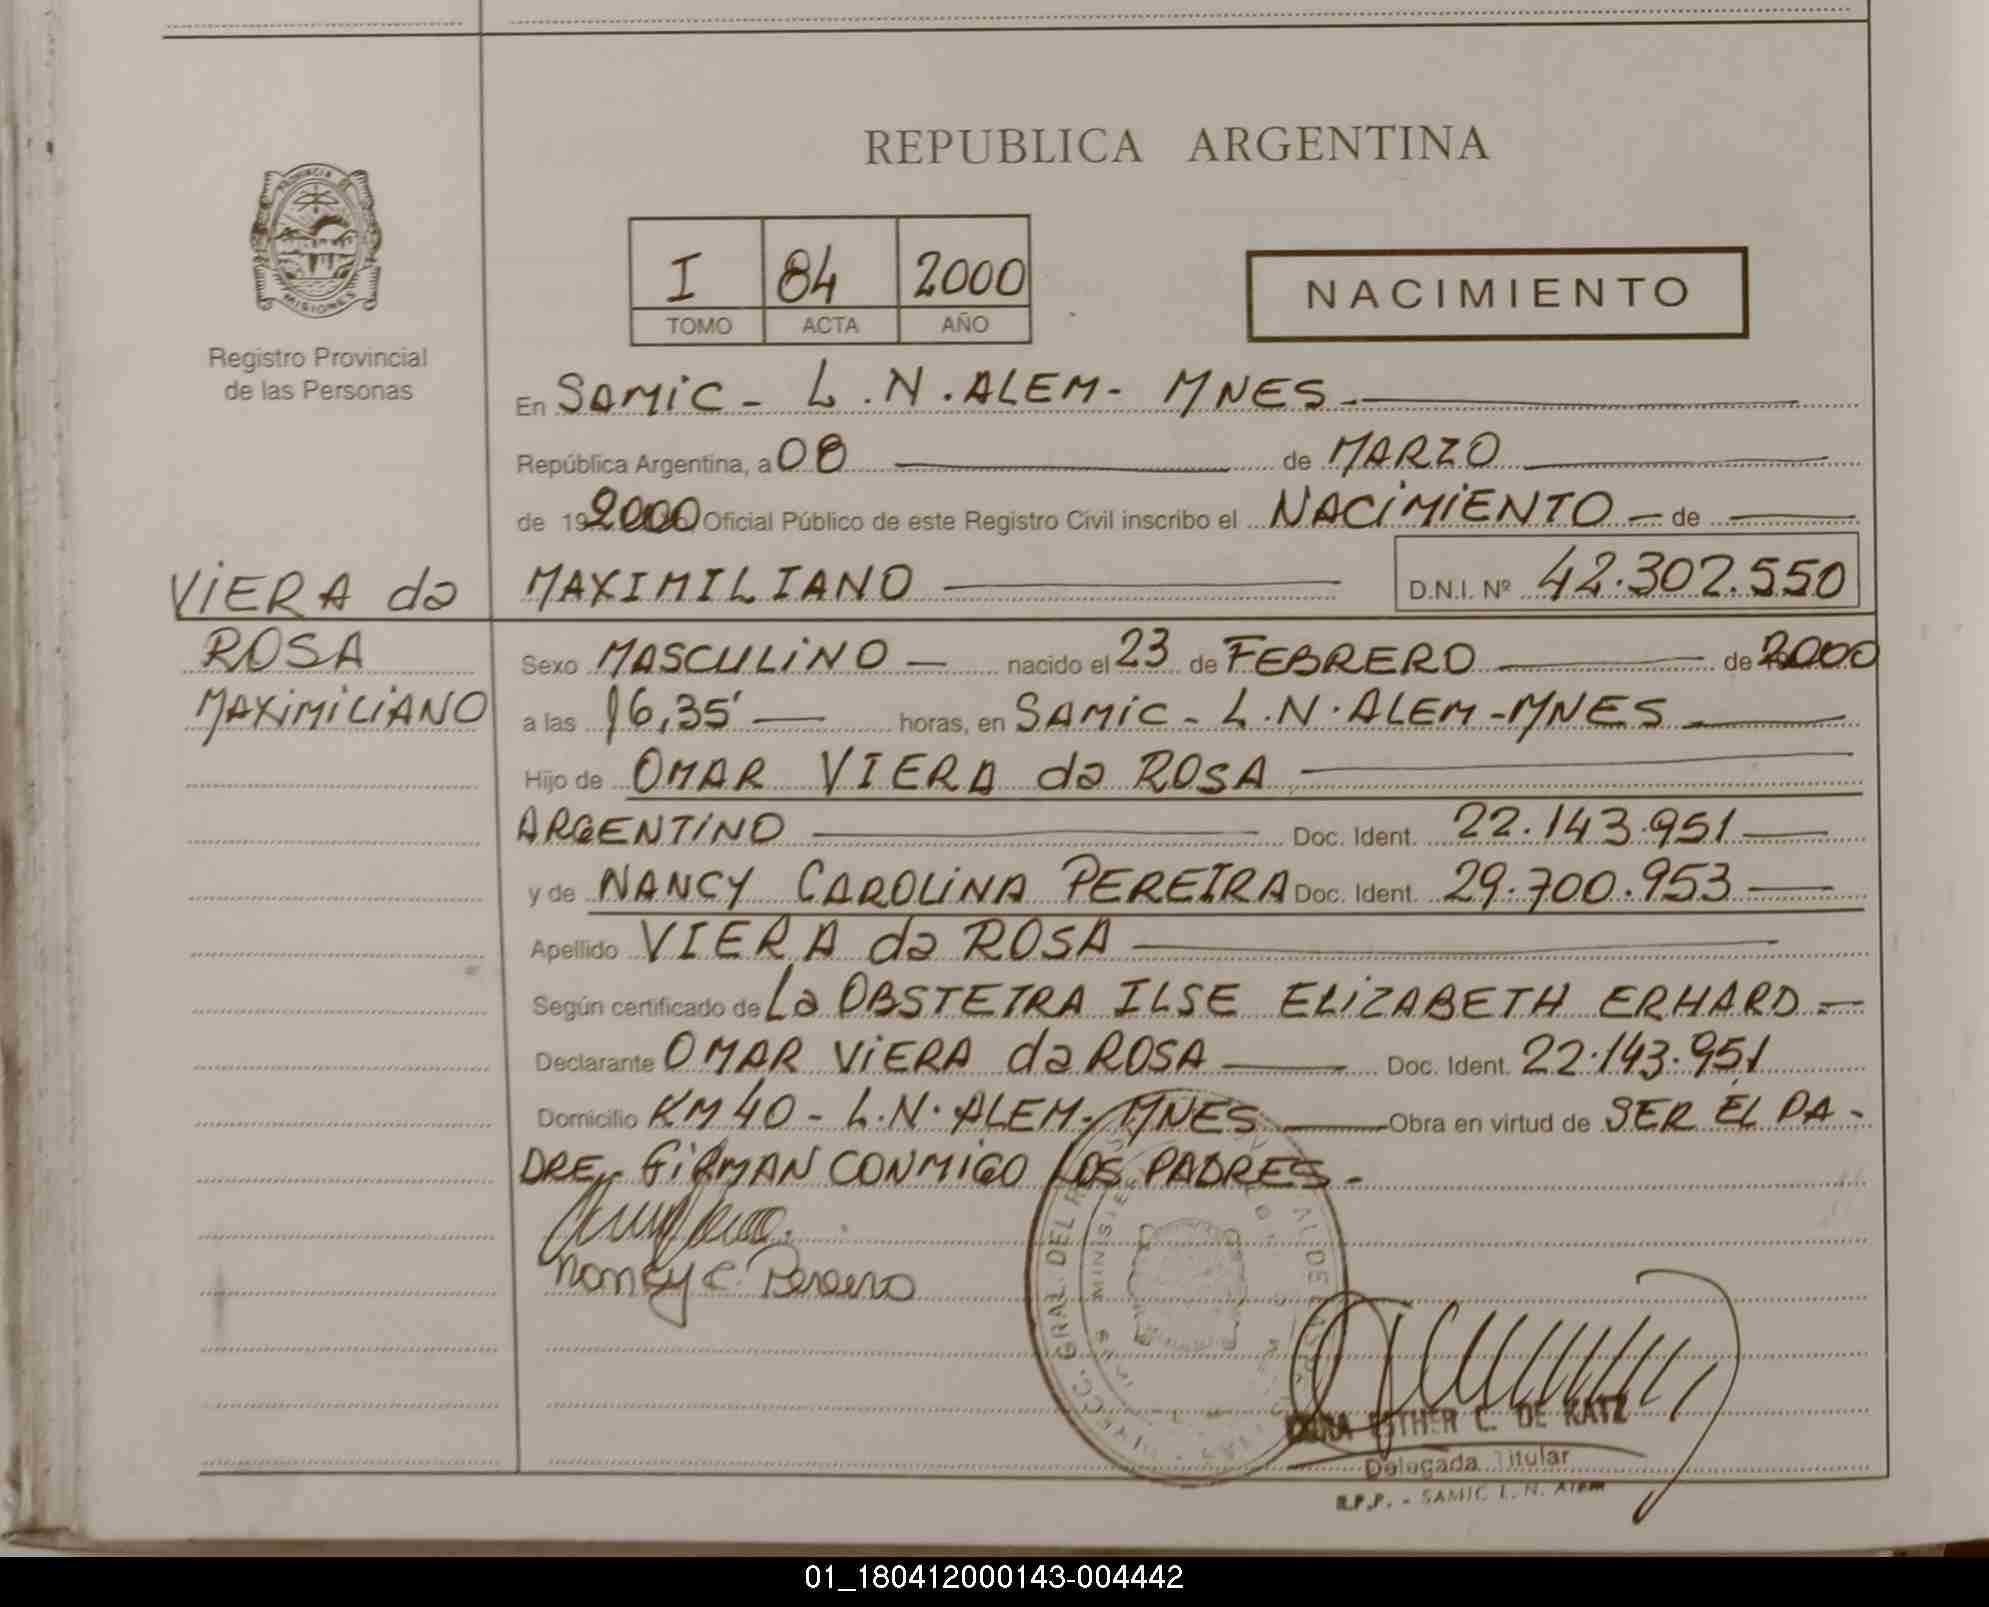 REPUBLICA ARGENTINA
PROVINCIA DE
MISIONES
Registro Provincial
de las Personas
I 84 2000
TOMO ACTA AÑO
NACIMIENTO
En SAMIC - L.N.ALEM- MNES.
República Argentina, a 08 de MARZO
de 19 2000 Oficial Público de este Registro Civil inscribo el NACIMIENTO - de
VIERA da MAXIMILIANO D.N.I. Nº 42.302.550
ROSA
MAXIMILIANO
Sexo MASCULINO - nacido el 23 de FEBRERO de 2000
a las 16,35' horas, en SAMIC - L.N.ALEM - MNES
Hijo de OMAR VIERA da ROSA
ARGENTINO Doc. Ident. 22.143.951
y de NANCY CAROLINA PEREIRA Doc. Ident. 29.700.953
Apellido VIERA da ROSA
Según certificado de La OBSTETRA ILSE ELIZABETH ERHARD -
Declarante OMAR VIERA da ROSA Doc. Ident. 22.143.951
Domicilio KM 40 - L.N.ALEM- MNES Obra en virtud de SER EL PA-
DRE, FIRMAN CONMIGO LOS PADRES -
Nancy C. Pereira
ESTHER C. DE KATZ
Delegada Titular
R.P.P. - SAMIC L. N. Alem
01_180412000143-004442